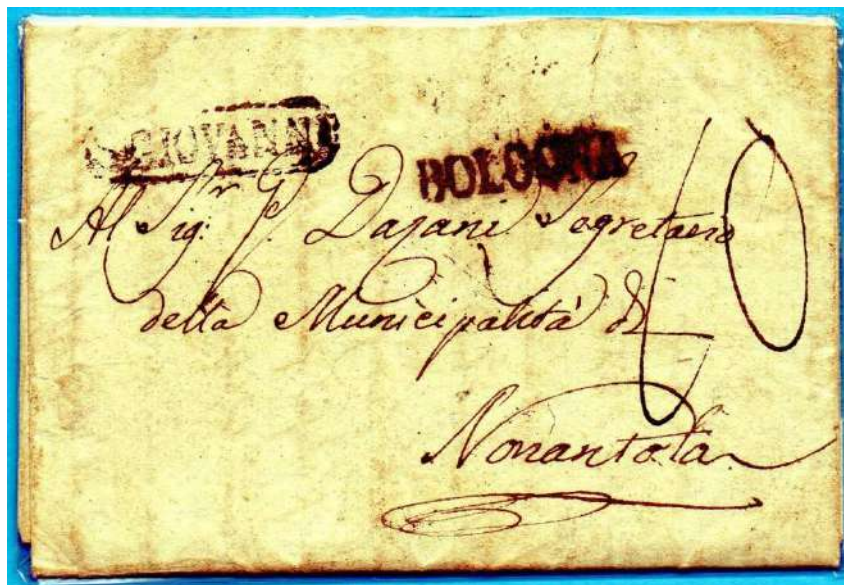 S. GIOVANNI
BOLOGNA
Al Sig.r P. Segretario
della Municipalità di
Nonantola